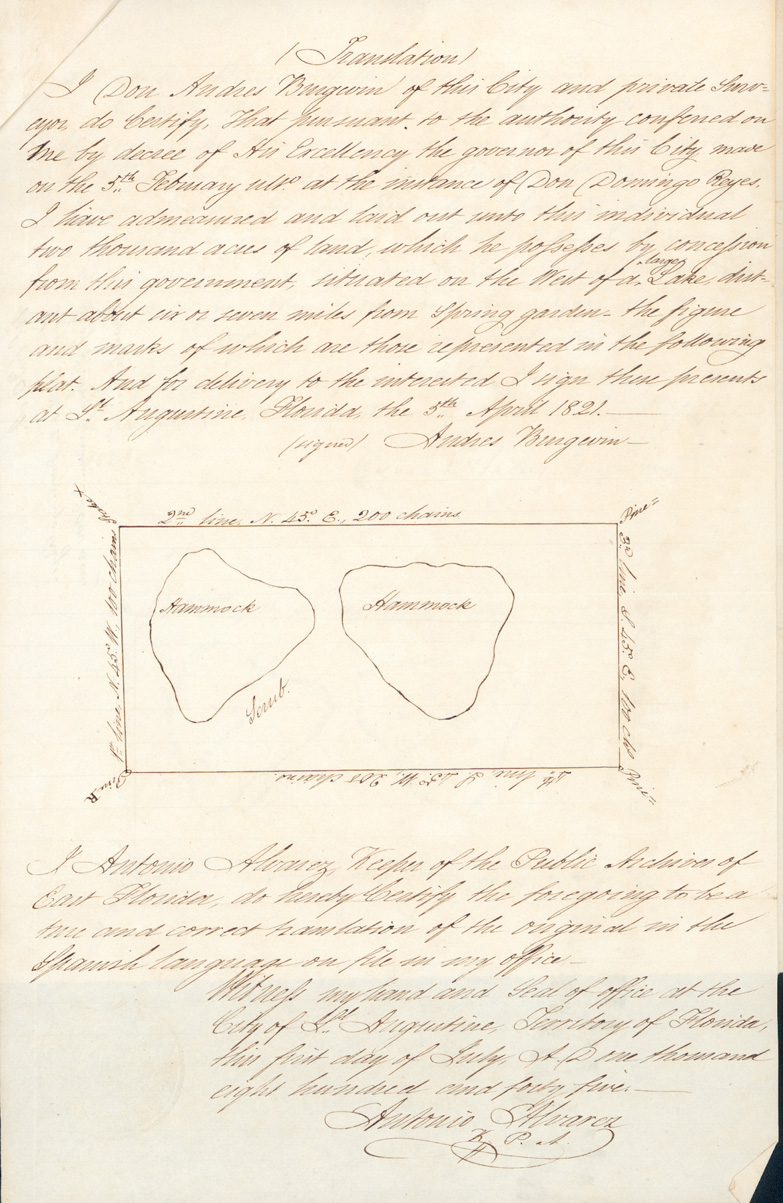 (Translation)
I Don Andres Burgevin of this City and private Surv=
eyor, do Certify, That pursuant to the authority conferred on
me by decree of His Excellency the governor of this City made
on the 5th February ulto at the instance of Don Domingo Reyes,
I have admeasured and laid out unto this individual
two thousand acres of land, which he possesses by concession
from this government, situated on the West of a large Lake, dist=
ant about six or seven miles from Spring garden - the figure
and marks of which are those represented in the following
plat. And for delivery to the interested I sign these presents
at St Augustine, Florida, the 5th April 1821.
(signed) Andres Burgevin
2nd line, N. 45° E., 200 chains
Pine=
1st line, N. 45° W., 100 chains
Hammock
Hammock
3rd line, S. 45° E, 100 chs
Scrub.
4th line, S. 45° W, 200 chains
Pine R
Pine=
I Antonio Alvarez, Keeper of the Public Archives of
East Florida, do hereby Certify the foregoing to be a
true and correct translation of the original in the
Spanish language on file in my office
Witness my hand and Seal of office at the
City of St Augustine, Territory of Florida,
this first day of July, A D one thousand
eight hundred and forty five.
Antonio Alvarez
K. P. A.